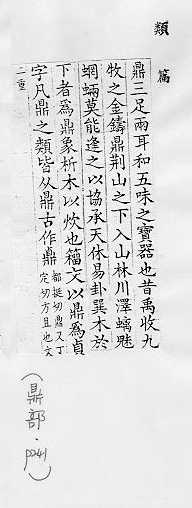 類篇
鼎三足兩耳和五味之寶器也昔禹收九
牧之金鑄鼎荊山之下入山林川澤螭魅
蝄蜽莫能逢之以協承天休易卦巽木於
下者爲鼎象析木以炊也籀文以鼎爲貞
字凡鼎之類皆从鼎古作 都挺切鼎又丁定切方且也文
二重
(鼎部·p241)